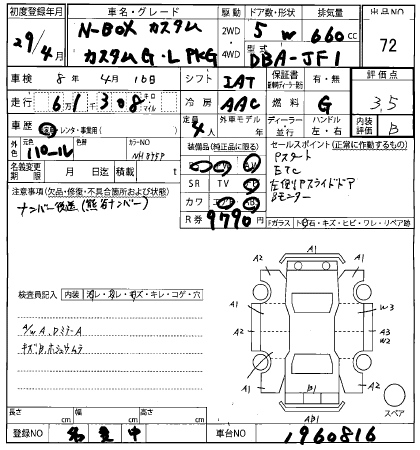 初度登録年月 車名・グレード 駆動 ドア数・形状 排気量 出品NO
29/4月 N-BOX カスタム 2WD 5 W 660cc 72
カスタム G・L PKG 4WD 型式 DBA-JF1
車検 8年 4月 16日 シフト IAT 保証書 有・無 評価点
走行 6万1千308 キロ マイル 冷房 AAC 燃料 G 3.5
車歴 レンタ・事業用( ) 定員 4人 外車モデル 年 ディーラー・並行 ハンドル 左・右 内装評価 B
外色 元色 パール 色替 カラーNO NH875P 装備品(純正品に限る) セールスポイント(正常に作動するもの)
名義変更期限 月 日迄 積載 t SR TV Pスタート
ETC
左側Pスライドドア
Bモニター
注意事項(欠品・修復・不具合箇所および状態) カワ
ナンバー後送(熊谷ナンバー) R券 9790円 Fガラス ト石・キズ・ヒビ・ワレ・リペア跡
検査員記入 内装
キレ・コゲ・穴
A/W A、Dミラー A
A1
A1 A1
A1 W3
A2 A3
W2
A2 A2
B1
AB1
スペア
長さ cm 幅 cm 高さ cm
登録NO 名変中 車台NO 1960816